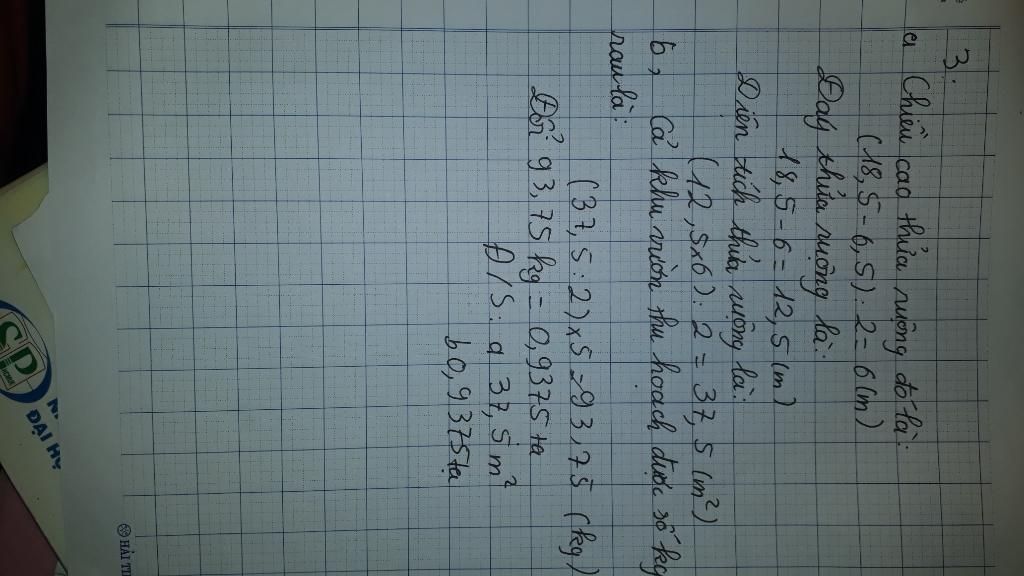 3.
a Chiều cao thửa ruộng đó là:
(18,5-6,5):2=6(m)
Đáy thửa ruộng là:
18,5-6=12,5(m)
Diện tích thửa ruộng là:
(12,5x6):2=37,5(m²)
b, Cả khu vườn thu hoạch được số kg
rau là:
(37,5:2)x5=93,75(kg)
Đổi 93,75kg=0,9375tạ
Đ/S: a 37,5m²
b0,9375tạ
ĐẠI HỌ
HẢI T